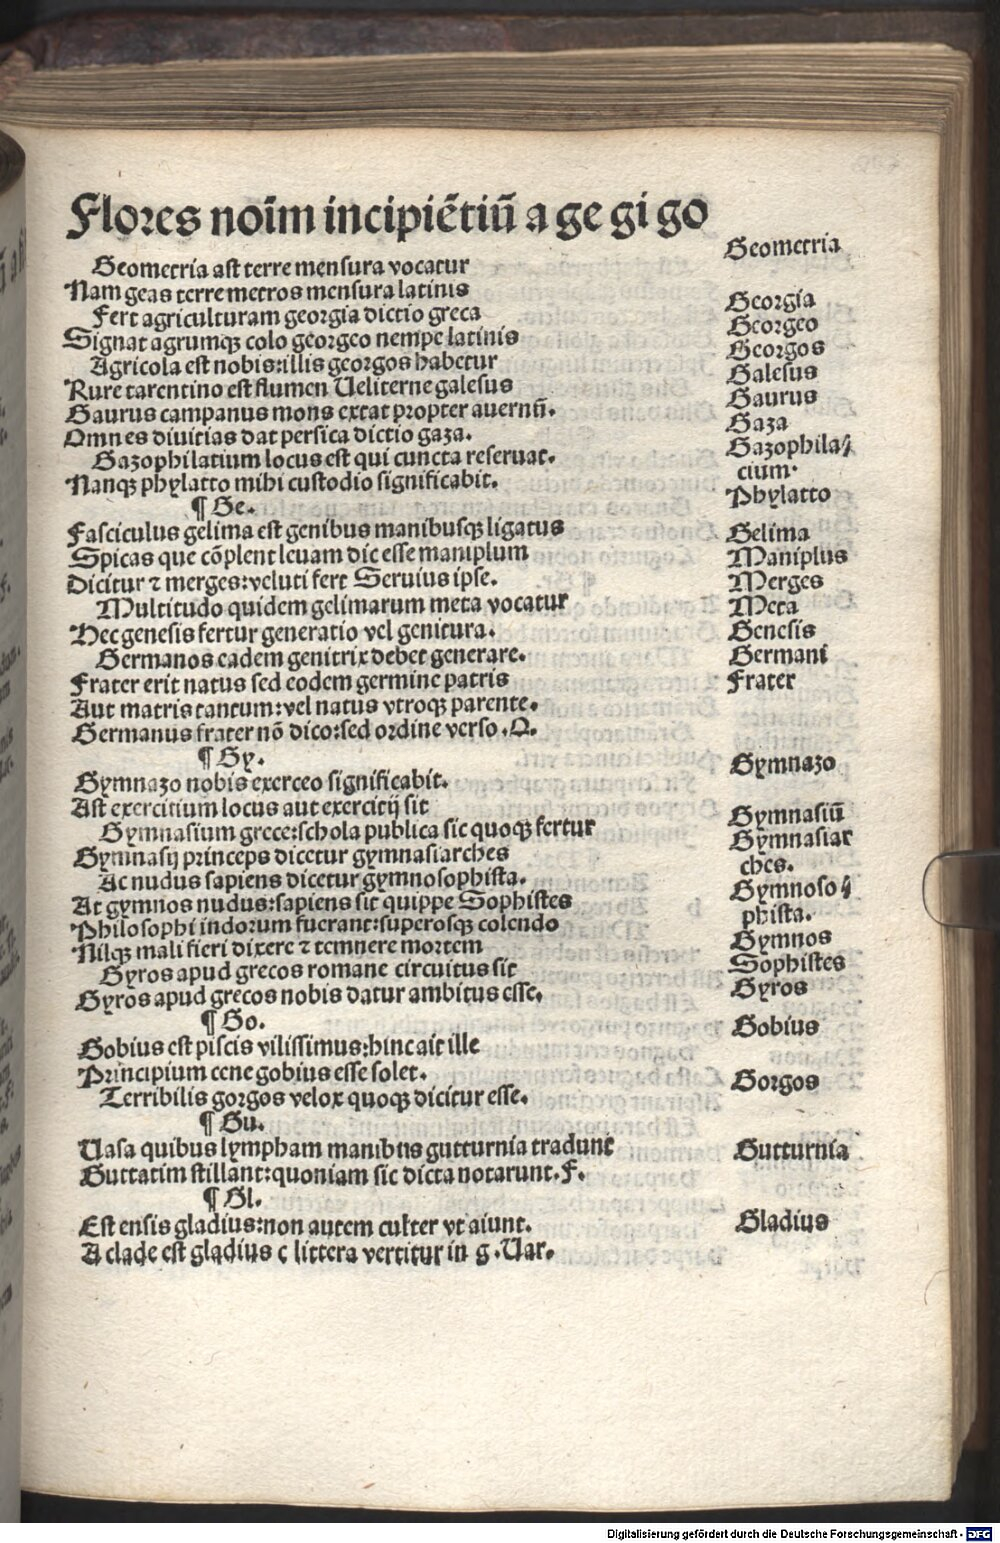 Flores noīm incipiētiū a ge gi go
Geometria ast terre mensura vocatur
Geometria
Nam geas terre metros mensura latinis
Fert agriculturam georgia dictio greca
Georgia
Signat agrumqȝ colo georgeo nempe latinis
Georgeo
Agricola est nobis:illis georgos habetur
Georgos
Rure tarentino est flumen Ueliterne galesus
Galesus
Gaurus campanus mons extat propter auernū.
Gaurus
Omnes diuitias dat persica dictio gaza.
Gaza
Gazophilatium locus est qui cuncta reseruat.
Gazophila⸗
cium·
Nanqȝ phylatto mihi custodio significabit.
Phylatto
¶ Ge.
Fasciculus gelima est genibus manibusqȝ ligatus
Gelima
Spicas que cōplent leuam dic esse maniplum
Maniplus
Dicitur ⁊ merges:veluti fert Seruius ipse.
Merges
Multitudo quidem gelimarum meta vocatur
Meta
Hec genesis fertur generatio vel genitura.
Genesis
Germanos eadem genitrix debet generare.
Germani
Frater erit natus sed eodem germine patris
Frater
Aut matris tantum:vel natus vtroqȝ parente.
Germanus frater nō dico:sed ordine verso.Q.
¶ Gy.
Gymnazo nobis exerceo significabit.
Gymnazo
Ast exercitium locus aut exercitij sit
Gymnasium grece:schola publica sic quoqȝ fertur
Gymnasiū
Gymnasij princeps dicetur gymnasiarches
Gymnasiar
ches.
Ac nudus sapiens dicetur gymnosophista.
Gymnoso⸗
phista.
At gymnos nudus:sapiens sit quippe Sophistes
Philosophi indorum fuerant:superosqȝ colendo
Gymnos
Nilqȝ mali fieri dixere ⁊ temnere mortem
Sophistes
Gyros apud grecos romane circuitus sit
Gyros
Gyros apud grecos nobis datur ambitus esse.
¶ Go.
Gobius est piscis vilissimus:hinc ait ille
Gobius
Principium cene gobius esse solet.
Terribilis gorgos velox quoqȝ dicitur esse.
Gorgos
¶ Gu.
Uasa quibus lympham manibus gutturnia tradunt
Gutturnia
Guttatim stillant:quoniam sic dicta notarunt.F.
¶ Gl.
Est ensis gladius:non autem culter vt aiunt.
Gladius
A clade est gladius c littera vertitur in g.Uar.
Digitalisierung gefördert durch die Deutsche Forschungsgemeinschaft - DFG